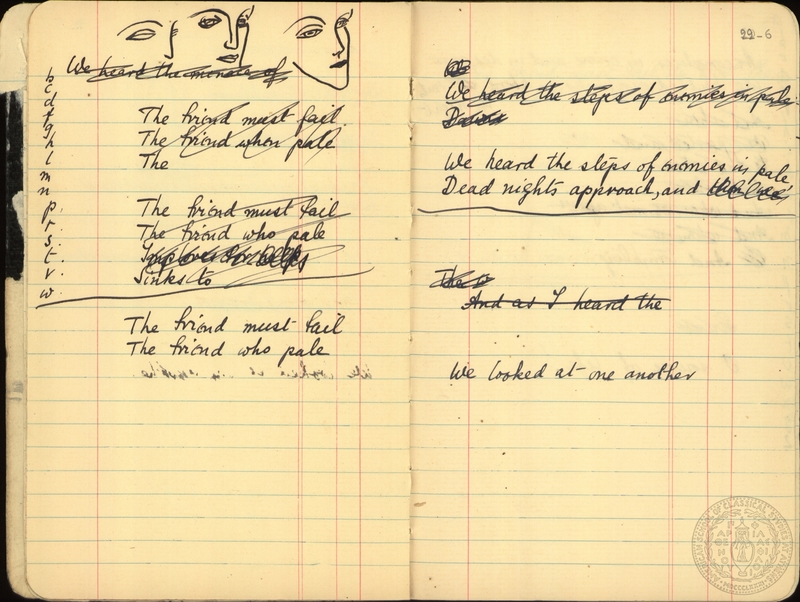 We heard the
b
c
d
f
g
h
l
m
n
p.
r.
s.
t.
v.
w.
The friend must fail
The friend when pale
The
The friend must fail
The friend who pale
Sinks to
The friend must fail
The friend who pale
22-6
We heard the steps of enemies in pale
We heard the steps of enemies in pale
Dead nights approach, and
And as I heard the
We looked at one another